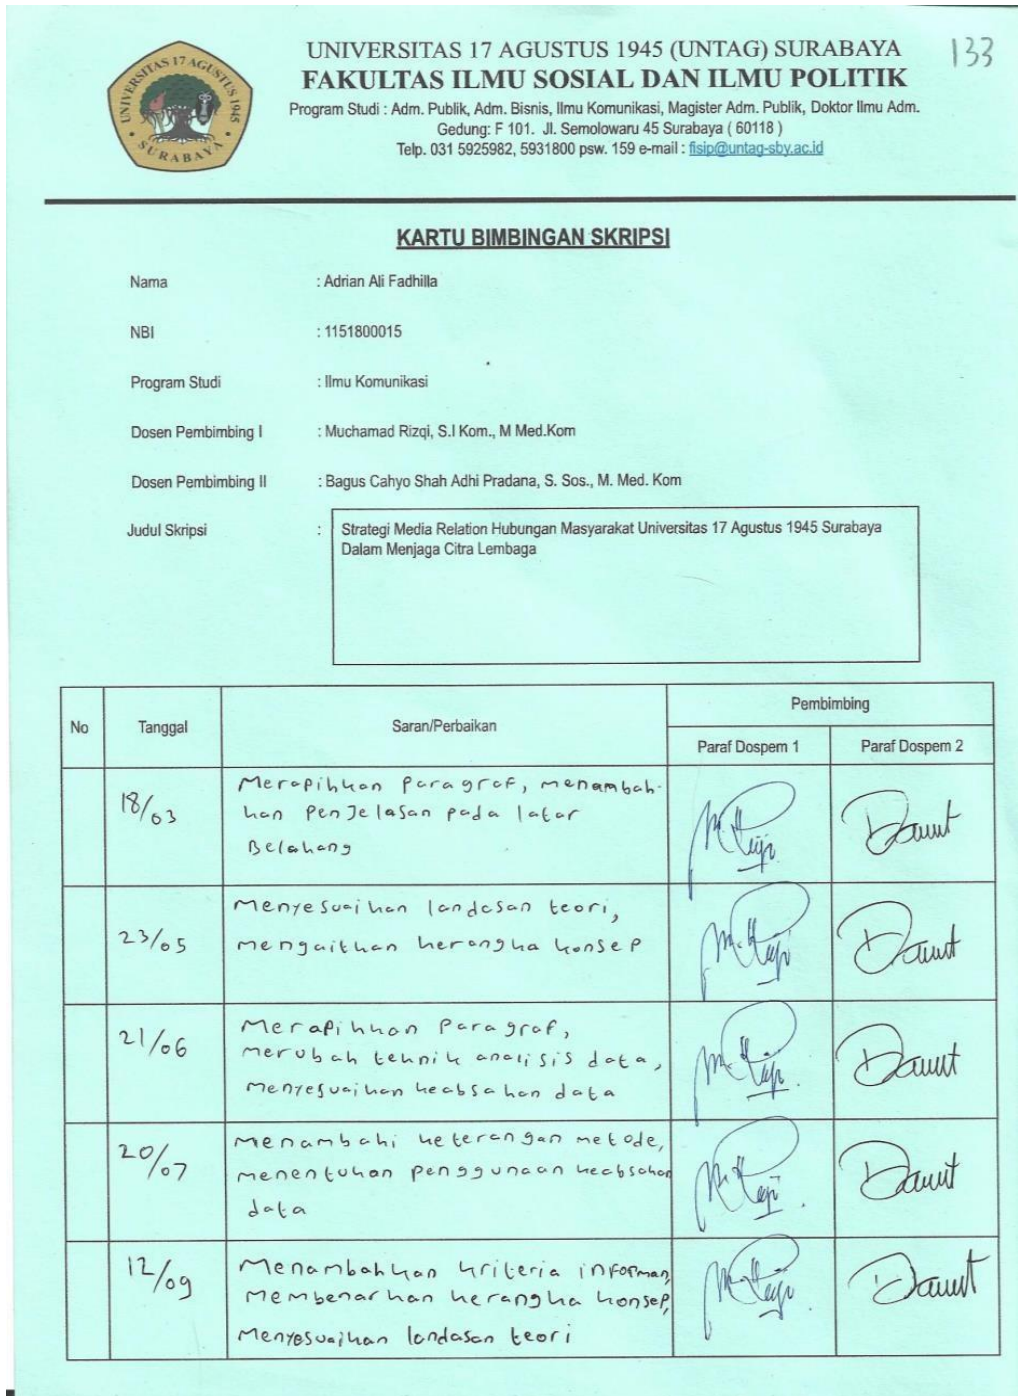 UNIVERSITAS 17 AGUSTUS 1945
SURABAYA
UNIVERSITAS 17 AGUSTUS 1945 (UNTAG) SURABAYA
133
FAKULTAS ILMU SOSIAL DAN ILMU POLITIK
Program Studi : Adm. Publik, Adm. Bisnis, Ilmu Komunikasi, Magister Adm. Publik, Doktor Ilmu Adm.
Gedung: F 101. Jl. Semolowaru 45 Surabaya ( 60118 )
Telp. 031 5925982, 5931800 psw. 159 e-mail : fisip@untag-sby.ac.id
KARTU BIMBINGAN SKRIPSI
Nama : Adrian Ali Fadhilla
NBI : 1151800015
Program Studi : Ilmu Komunikasi
Dosen Pembimbing I : Muchamad Rizqi, S.I Kom., M Med.Kom
Dosen Pembimbing II : Bagus Cahyo Shah Adhi Pradana, S. Sos., M. Med. Kom
Judul Skripsi : Strategi Media Relation Hubungan Masyarakat Universitas 17 Agustus 1945 Surabaya
Dalam Menjaga Citra Lembaga
No Tanggal Saran/Perbaikan Pembimbing
Paraf Dospem 1 Paraf Dospem 2
18/03 Merapihkan Paragraf, menambah-
kan Penjelasan pada latar
Belakang
23/05 Menyesuaikan landasan teori,
mengaitkan kerangka konsep
21/06 Merapihkan Paragraf,
merubah teknik analisis data,
menyesuaikan keabsahan data
20/07 Menambahi keterangan metode,
menentukan penggunaan keabsahan
data
12/09 Menambahkan kriteria informan,
Membenarkan kerangka konsep,
Menyesuaikan landasan teori